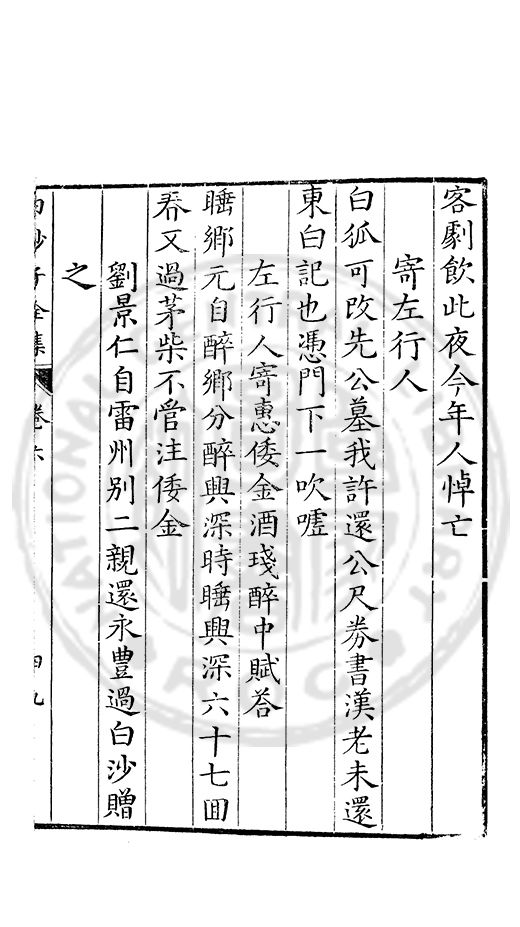 客劇飲此夜今年人悼亡
寄左行人
白狐可改先公墓我許還公尺劵書漢老未還
東白記也憑門下一吹噓
左行人寄惠倭金酒琖醉中賦荅
睡鄉元自醉鄉分醉興深時睡興深六十七囬
春又過茅柴不管注倭金
劉景仁自雷州别二親還永豊過白沙贈
之
白沙子全集 卷六 四九
NATIONAL